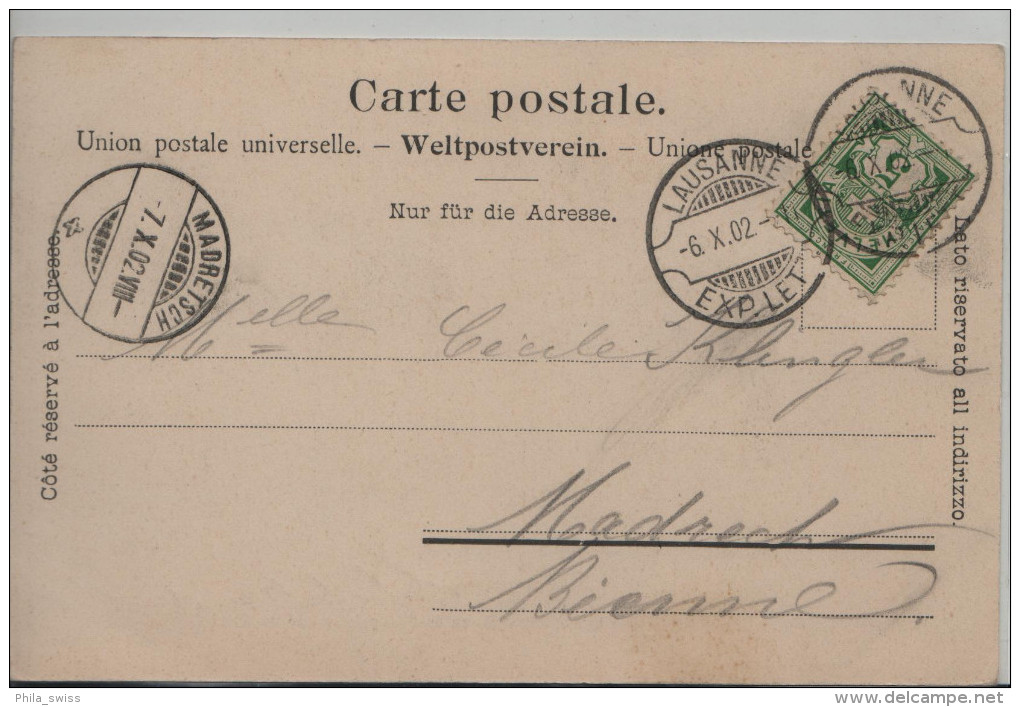 Carte postale.
Union postale universelle. – Weltpostverein. – Unione postale
Nur für die Adresse.
Côté réservé à l'adresse.
Lato riservato all indirizzo.
MADRETSCH
-7.X.02.VIII-
LAUSANNE
-6.X.02.-
EXP.LET
ANNE
5
Melle Cécile Klingler
Madretsch
Bienne
Phila_swiss
delcampe.net